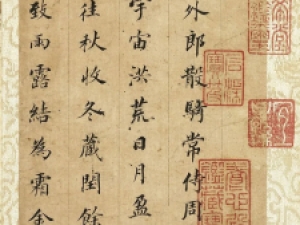 外郎散騎常侍周
宇宙洪荒日月盈
往秋收冬藏閏餘
致雨露結為霜金